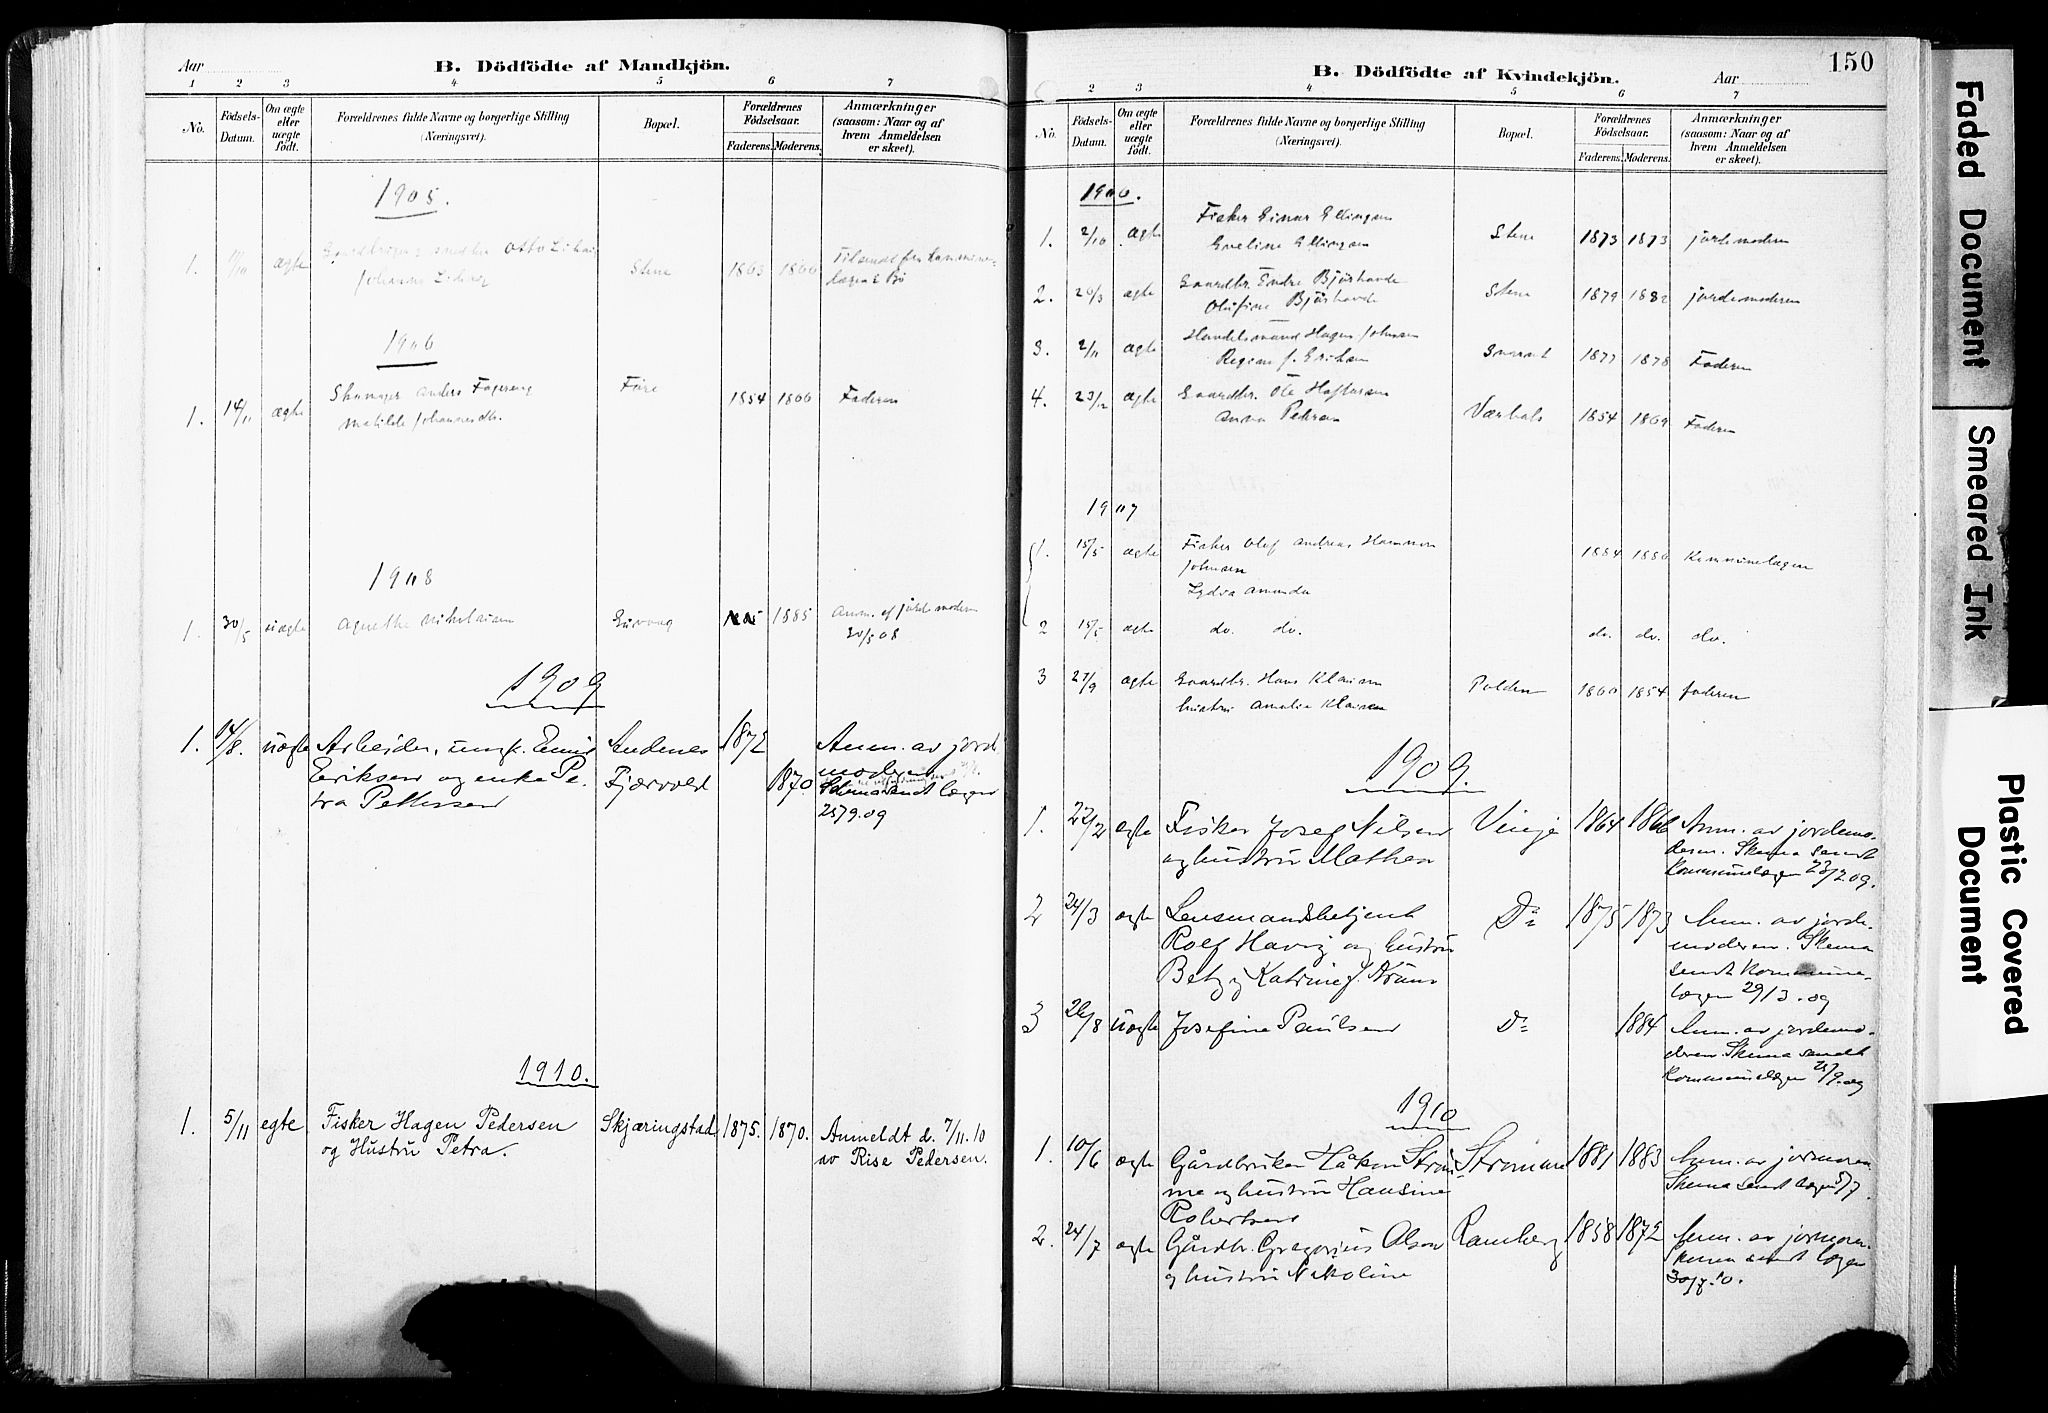 Aar
B. Dödfödte af Mandkjön.
1 2 3 4 5 6 7
No.
Födsels-Datum.
Om ægte eller uægte födt.
Forældrenes fulde Navne og borgerlige Stilling (Næringsvei).
Bopæl.
Forældrenes Födselsaar.
Faderens. Moderens.
Anmærkninger (saasom: Naar og af hvem Anmeldelsen er skeet).
1905.
1. ægte Otto
Johanna
Stene 1863 1866
1906
1. 14/11 ægte Skomager Anders Fagereng
Matilde Johannesdtr.
Føre 1854 1866 Faderen
1908
1. 30/5 uægte Agnethe Nikolaisen
1885 Anm. af jordemoderen
30/5 08
1909
1. 14/8. uægte Arbeider, ungk. Emil
Eriksen og enke Pe-
tra Pettersen
Andenes
Fjærvold
1872
1870.
Anm. av jord-
moderen
Skema sendt lægen
25/9.09
1910.
1. 5/11 egte Fisker Hagen Pedersen
og Hustru Petra.
Skjæringstad 1875. 1870. Anmeldt d. 7/11.10
av Rise Pedersen.
150
B. Dödfödte af Kvindekjön.
Aar
2 3 4 5 6 7
No.
Födsels-Datum.
Om ægte eller uægte födt.
Forældrenes fulde Navne og borgerlige Stilling (Næringsvei).
Bopæl.
Forældrenes Födselsaar.
Faderens. Moderens.
Anmærkninger (saasom: Naar og af hvem Anmeldelsen er skeet).
1906.
1. 2/10 ægte Fisker Einar Ellingsen
Eveline Ellingsen
Stene 1873 1873 jordemoderen
2. 26/3 ægte Gaardbr. Endre Bjørhovde
Olufine Bjørhovde
Stene 1879 1882 jordemoderen
3. 2/11 ægte Handelsmand Hagen Johnsen
f. Eriksen
1877 1878 Faderen
4. 23/12 ægte Gaardbr. Ole Haftorsen
Anna Pedersen
1854 1869 Faderen
1907
1. 15/5 ægte Fisker Olaf Andreas
Johnsen
Lydia Amanda
1884 1886 Kommunelægen
2 15/5 ægte do. do. do. do. do.
3 27/9 ægte Gaardbr. Hans Klausen
hustru Amalie Klausen
Polden 1860 1854 faderen
1909.
1. 22/2 egte Fisker Josef Nilsen
og hustru Mathea
Vinje 1864 1866 Anm. av jordemo-
deren. Skema sendt
Kommunelægen 23/2 09.
2 24/3 egte Lensmandsbetjent
Rolf Havig og hustru
Betzy Katrine f. Strøm
Do 1875 1873 Anm. av jorde-
moderen. Skema
sendt Kommune-
lægen 29/3.09
3 26/8 uægte Josefine Paulsen Do 1884 Anm. av jordemo-
deren. Skema sendt
Kommunelægen 25/9.09
1910
1. 10/6 ægte Gårdbruker Håkon Strøm-
me og hustru Hansine
Robertsen
Strømme 1881 1883 Anm. av jormoren
Skema sendt lægen 5/7.
2. 24/7 egte Gårdbr. Gregorius Olsen
og hustru Nikoline
Ramberg 1858 1872 Anm. av jormoren.
Skema sendt lægen
30/7.10.
Faded Document
Smeared Ink
Plastic Covered
Document